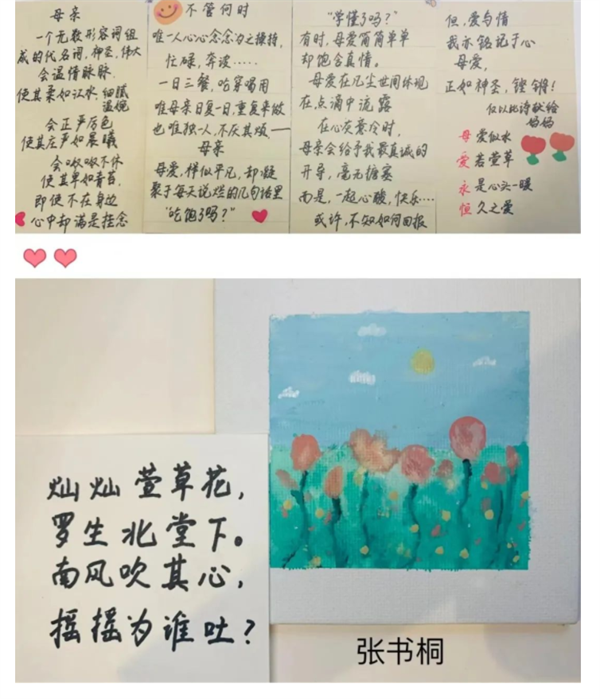 母亲
一个无数形容词组
成的代名词,神圣,伟大
会温情脉脉,
使其柔如江水,细腻
温婉
会正严厉色
使其庄严如晨曦
会呶呶不休
使其卑如青苔,
即使不在身边
心中却满是挂念
不管何时
唯一人心心念念为之操持,
忙碌,奔波……
一日三餐,吃穿喝用
唯母亲日复一日,重复来做
也唯独一人,不厌其烦——
母亲
母爱,看似平凡,却凝
聚于每天说烂的几句话里
"吃饱了吗?"
"学懂了吗?"
有时,母爱简简单单
却饱含真情。
母爱在凡尘世间体现
在点滴中流露
在心灰意冷时,
母亲会给予我最真诚的
开导,毫无搪塞
而是,一起心酸,快乐……
或许,不知如何回报
但,爱与情
我亦铭记于心
母爱,
正如神圣,铿锵!
仅以此诗献给
妈妈
母爱似水
爱若萱草
永是心头一暖
恒久之爱
灿灿萱草花,
罗生北堂下。
南风吹其心,
摇摇为谁吐?
张书桐